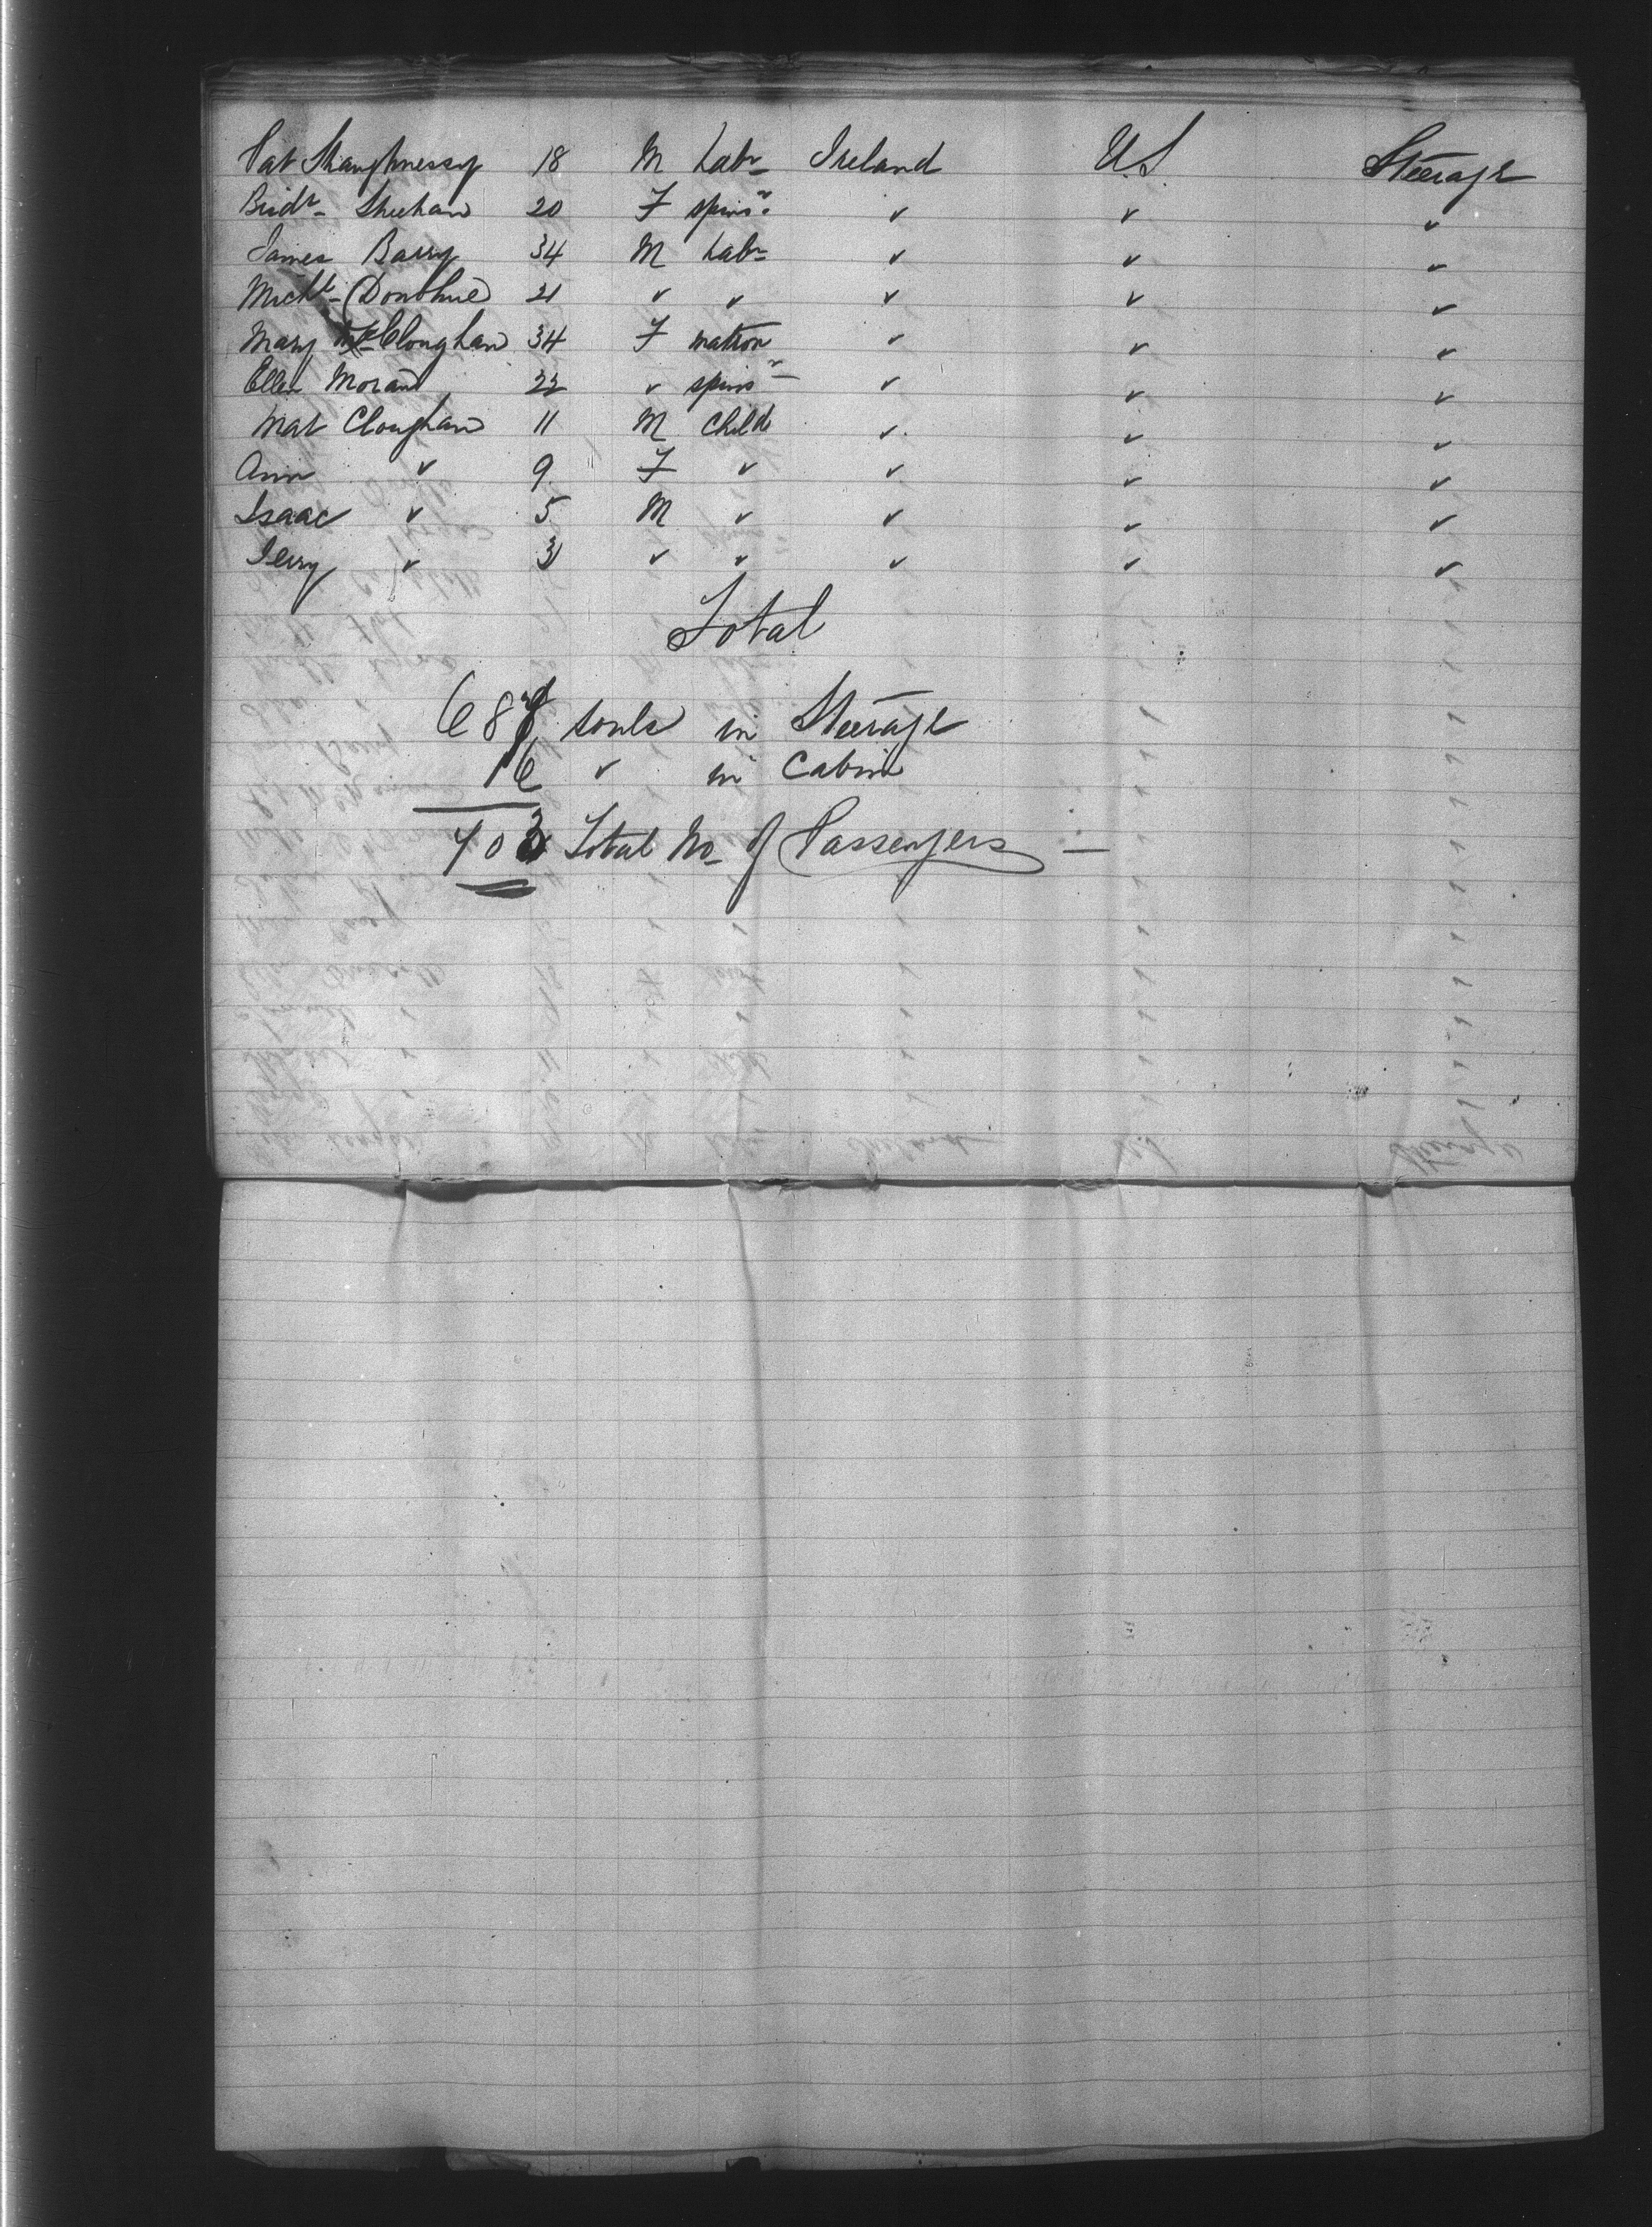 Pat Shaughnessy 18 M Labr Ireland U.S. Steerage
Bridt Sheehan 20 F spinsr ✓ ✓ ✓
James Barry 34 M Labr ✓ ✓ ✓
Michl Donohue 21 ✓ ✓ ✓ ✓ ✓
Mary Cloughan 34 F matron ✓ ✓ ✓
Ellen Moran 22 ✓ spinsr ✓ ✓ ✓
Mat Cloughan 11 M Child ✓ ✓ ✓
Ann ✓ 9 F ✓ ✓ ✓ ✓
Isaac ✓ 5 M ✓ ✓ ✓ ✓
Jerry ✓ 3 ✓ ✓ ✓ ✓ ✓
Total
687 souls in Steerage
16 ✓ in Cabin
703 Total No of Passengers